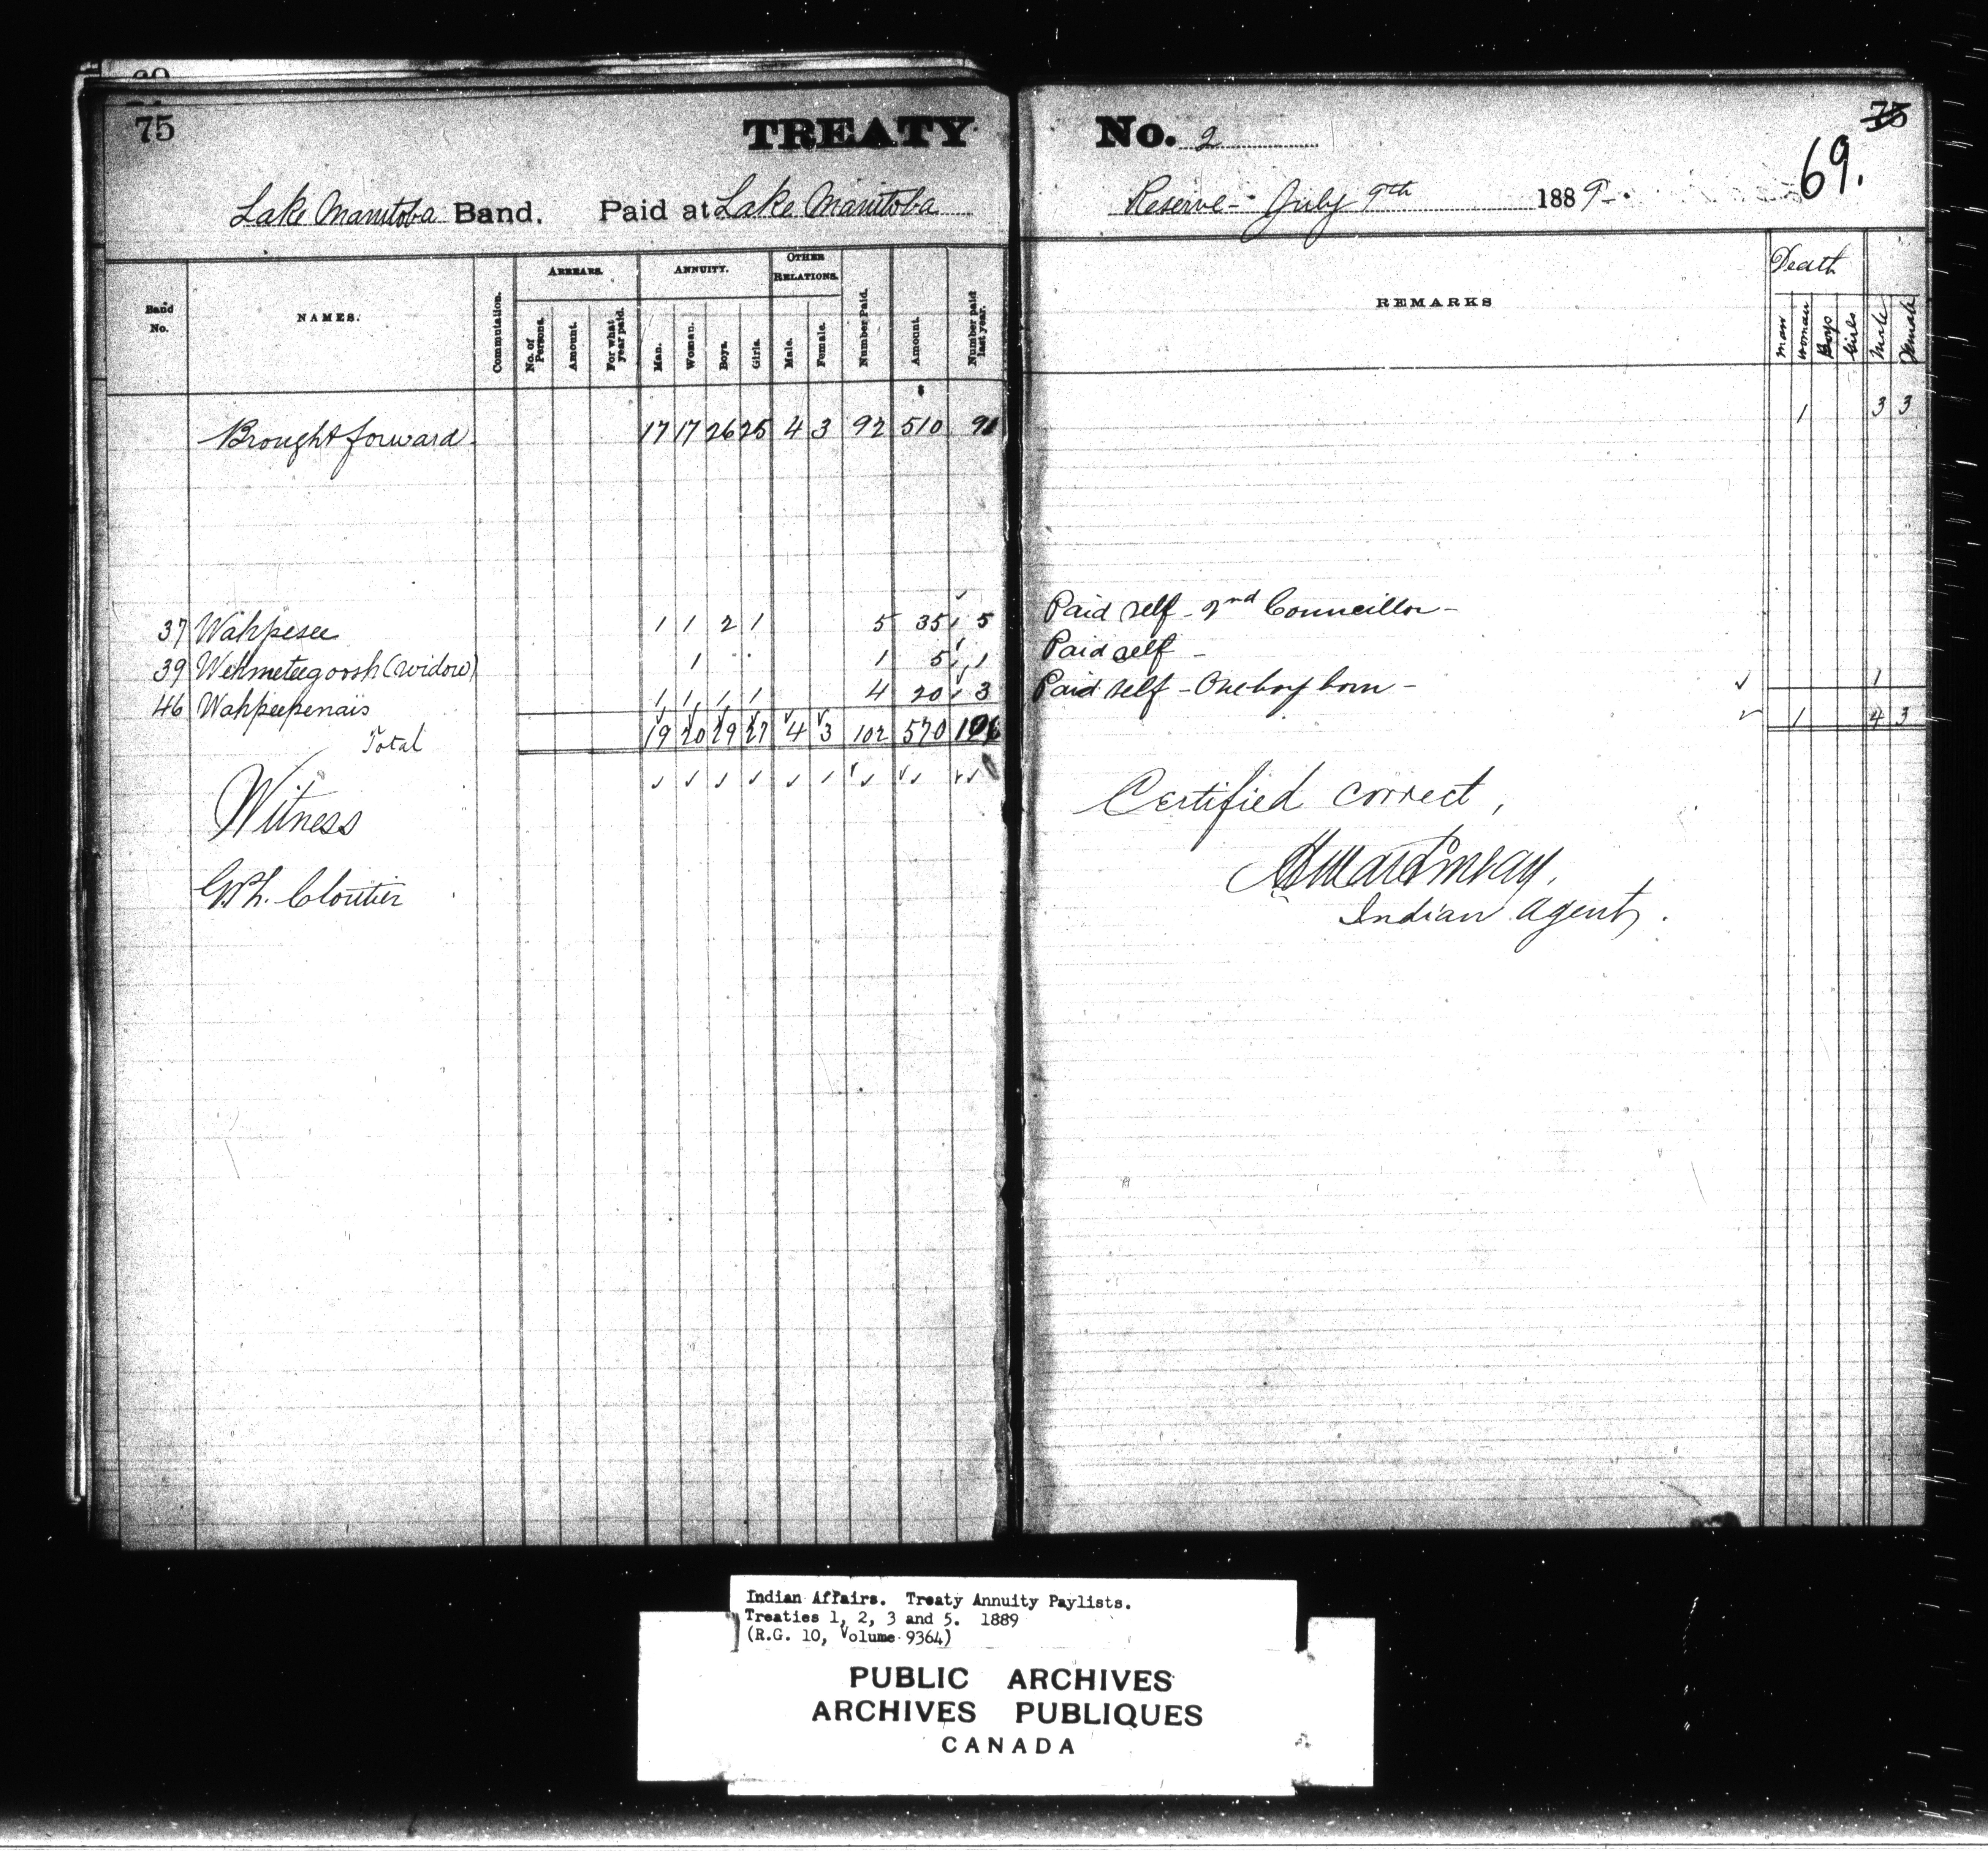 75
TREATY No. 2
75
69.
Lake Manitoba Band. Paid at Lake Manitoba Reserve - July 9th 1889 -
Band No.
NAMES.
Commutation.
ARREARS.
No. of Persons.
Amount.
For what year paid.
ANNUITY.
Man.
Woman.
Boys.
Girls.
OTHER RELATIONS.
Male.
Female.
Number Paid.
Amount.
Number paid last year.
REMARKS
Death
man
woman
Boys
Girls
Male
Female
Brought forward 17 17 26 25 4 3 92 510 91 1 3 3
37 Wahpesee 1 1 2 1 5 35 5 Paid self - 2nd Councillor -
39 Wehmeteegoosh (widow) 1 1 5 1 Paid self -
46 Wahpeepenais 1 1 1 1 4 20 3 Paid self - One boy born - 1
Total 19 20 29 27 4 3 102 570 1 4 3
Witness
Certified correct,
Cloutier
Indian Agent.
Indian Affairs. Treaty Annuity Paylists.
Treaties 1, 2, 3 and 5. 1889
(R.G. 10, Volume 9364)
PUBLIC ARCHIVES
ARCHIVES PUBLIQUES
CANADA